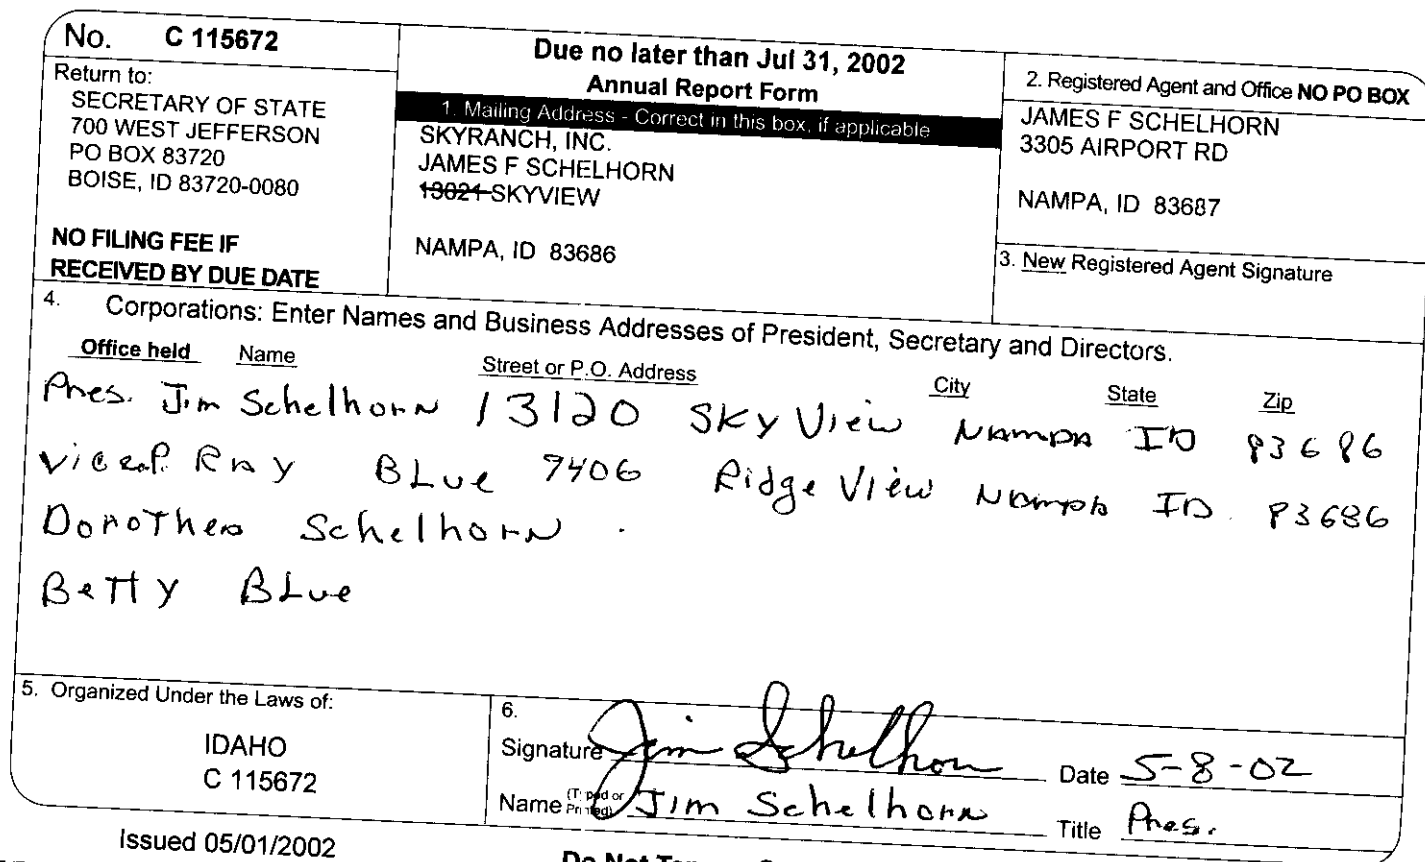 No. C 115672
Return to:
SECRETARY OF STATE
700 WEST JEFFERSON
PO BOX 83720
BOISE, ID 83720-0080
NO FILING FEE IF
RECEIVED BY DUE DATE
Due no later than Jul 31, 2002
Annual Report Form
1. Mailing Address - Correct in this box, if applicable
SKYRANCH, INC.
JAMES F SCHELHORN
13021 SKYVIEW
NAMPA, ID 83686
2. Registered Agent and Office NO PO BOX
JAMES F SCHELHORN
3305 AIRPORT RD
NAMPA, ID 83687
3. New Registered Agent Signature
4. Corporations: Enter Names and Business Addresses of President, Secretary and Directors.
Office held Name Street or P.O. Address City State Zip
Pres. Jim Schelhorn 13120 Sky View Nampa ID 83686
Vice P. Ray Blue 7406 Ridge View Nampa ID 83686
Dorothea Schelhorn
Betty Blue
5. Organized Under the Laws of:
IDAHO
C 115672
6.
Signature Jim Schelhorn Date 5-8-02
Name (Typed or Printed) Jim Schelhorn Title Pres.
Issued 05/01/2002
Do Not